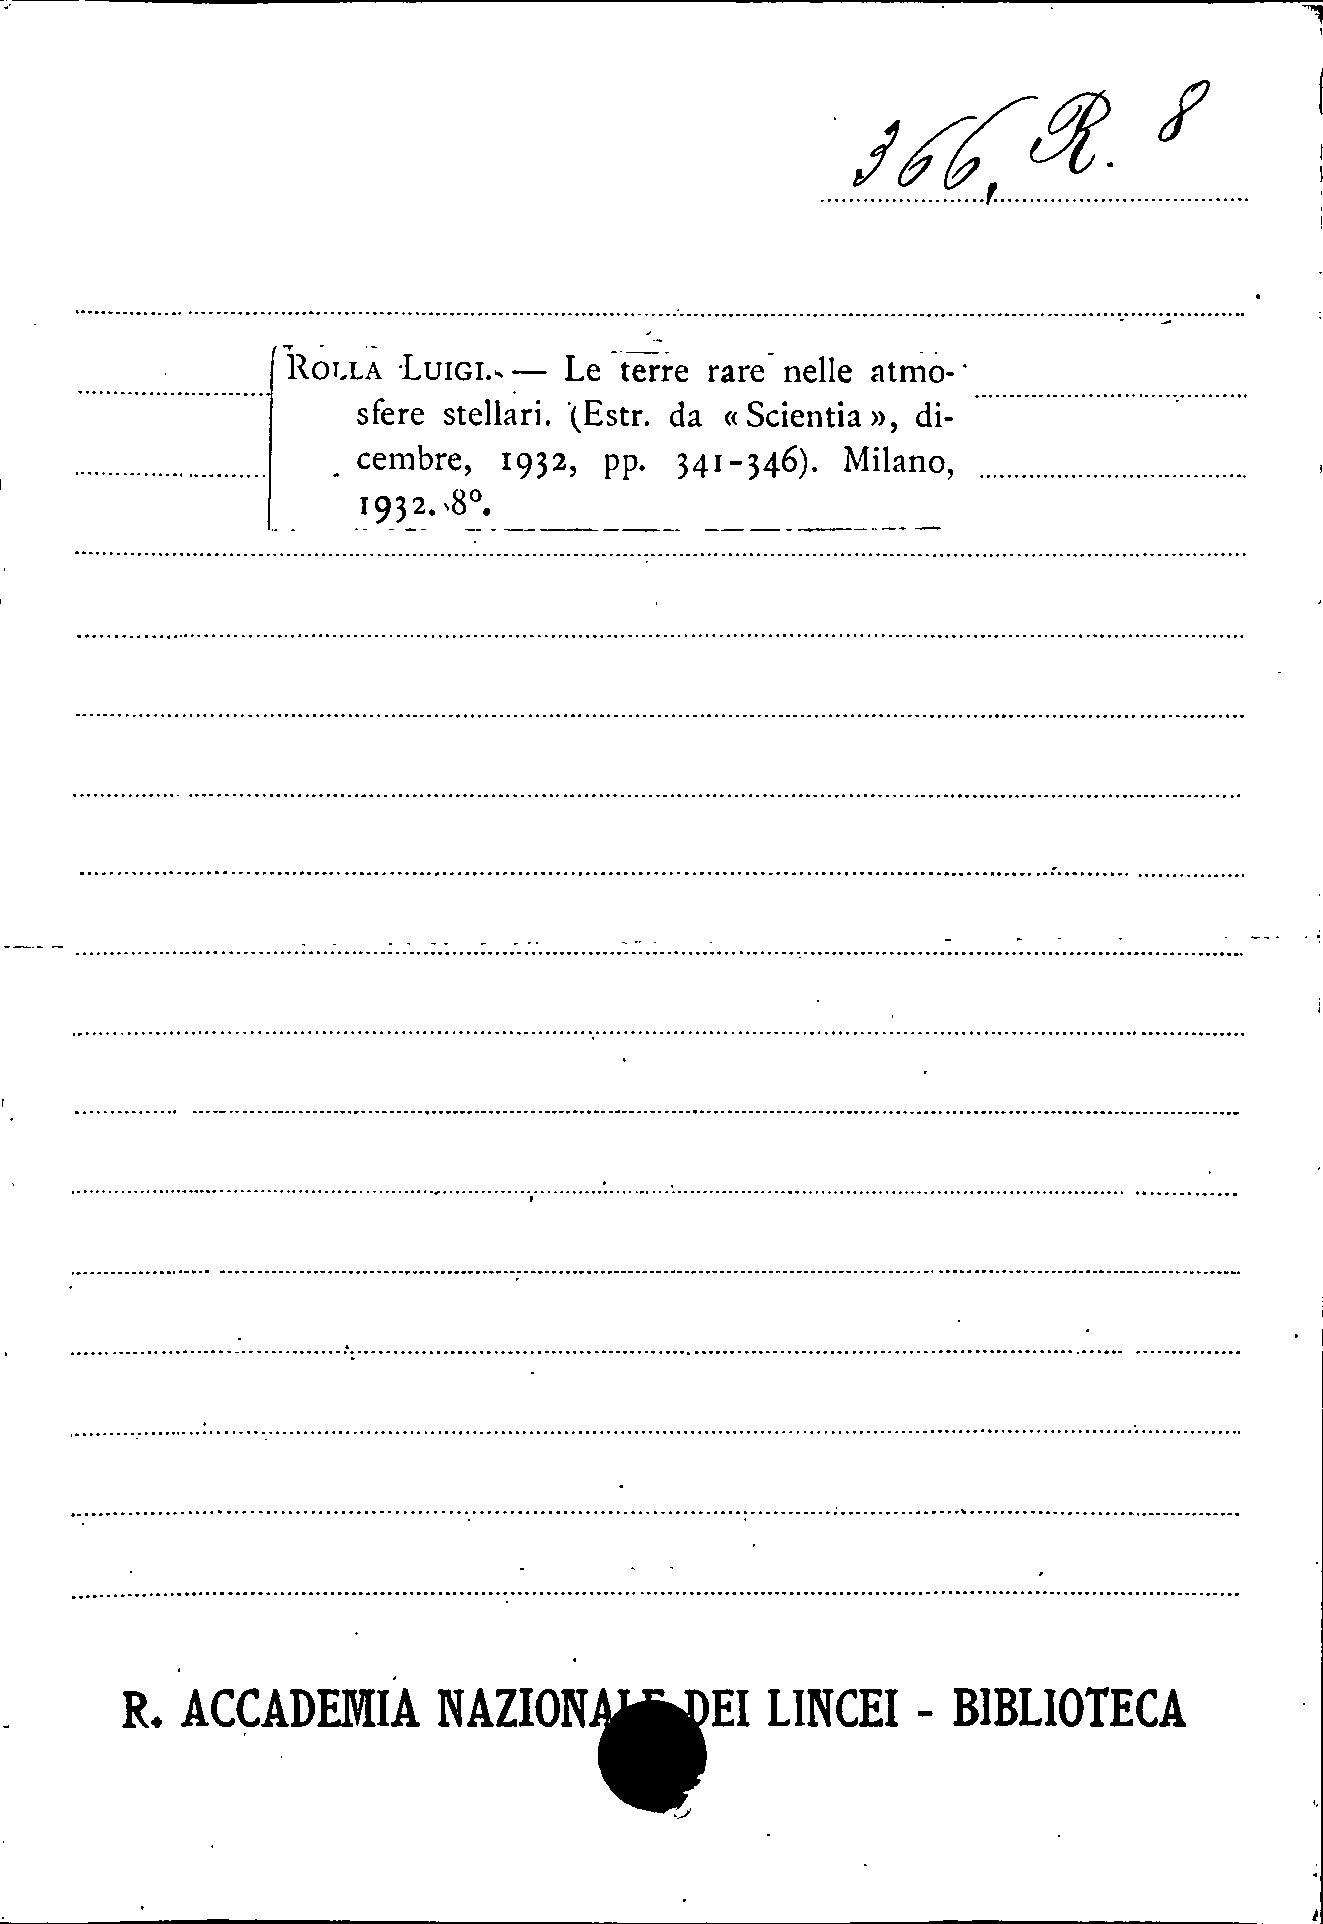 366, R. 8
ROLLA LUIGI. — Le terre rare nelle atmo-
sfere stellari. (Estr. da « Scientia », di-
cembre, 1932, pp. 341-346). Milano,
1932. 8º.
R. ACCADEMIA NAZIONALE DEI LINCEI - BIBLIOTECA